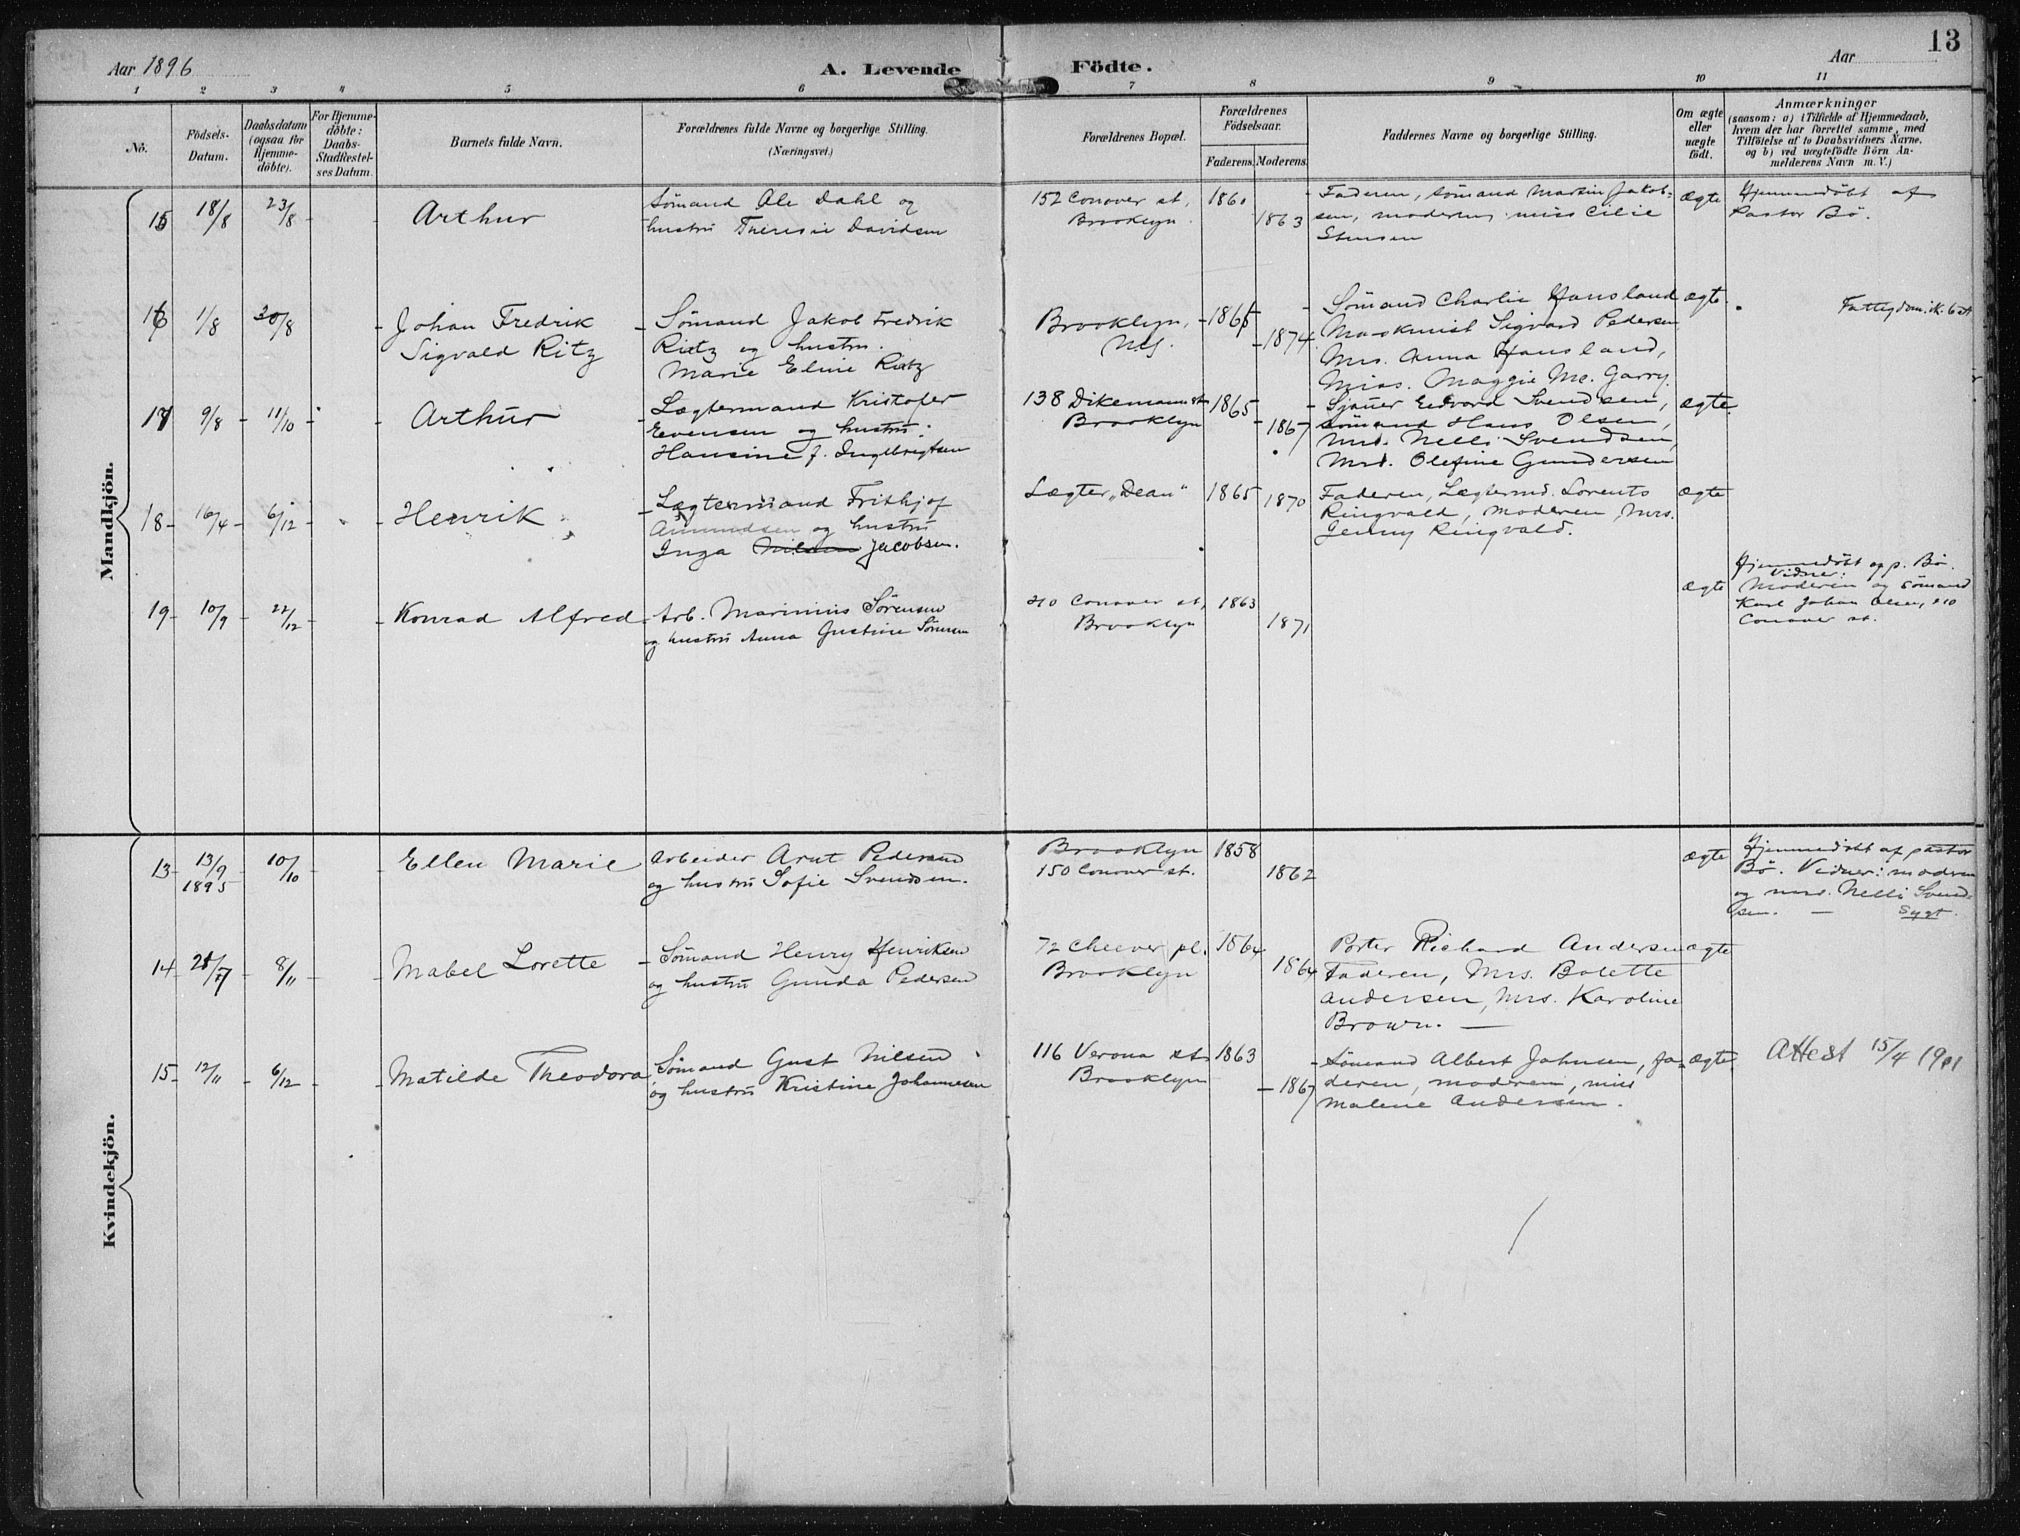 13
Aar 1896
A. Levende
Födte.
Aar
1 2 3 4 5 6 7 8 9 10 11
No.
Födsels-
Datum.
Daabsdatum
(ogsaa for
Hjemme-
döbte).
For Hjemme-
döbte:
Daabs-
Stadfæstel-
ses Datum.
Barnets fulde Navn.
Forældrenes fulde Navne og borgerlige Stilling.
(Næringsvei.)
Forældrenes Bopæl.
Forældrenes
Födselsaar.
Faderens. Moderens.
Faddernes Navne og borgerlige Stilling.
Om ægte
eller
uægte
födt.
Anmærkninger
(saasom: a) i Tilfælde af Hjemmedaab,
hvem der har forrettet samme, med
Tilföielse af to Daabsvidners Navne,
og b) ved uægtefödte Börn An-
melderens Navn m. V.)
Mandkjön.
15 18/8 23/8
Arthur
Sømand Ole Dahl og
hustru Theresie Davidsen
152 Conover st,
Brooklyn.
1860
1863
Faderen, sømand Martin Jakob-
sen, moderen, miss Cilie
Stensen
ægte
Hjemmedøbt af
Pastor Bø.
16 1/8 30/8
Johan Fredrik
Sigvald Ritz
Sømand Jakob Fredrik
Ritz og hustru
Marie Eline Ritz
Brooklyn,
N.Y.
1865
1874
Sømand Charlie Hansland
Maskinist Sigvard Pedersen
Mrs. Anna Hansland,
Miss. Maggie Mc. Garry.
ægte
17 9/8 11/10
Arthur
Lægtermand Kristofer
Evensen og hustru
Hansine f. Ingebrigtsen
138 Dikemann st
Brooklyn
1865
1867
Sjauer Edvard Svendsen,
sømand Hans Olsen,
Mrs. Nelli Svendsen,
Mrs. Olefine Gundersen
ægte
18 16/4 6/12
Henrik
Lægtermand Frithjof
Amundsen og hustru
Inga Nilsen Jacobsen.
Lægter "Dean"
1865
1870
Faderen, Lægtermd. Lorents
Ringvald, moderen, Mrs.
Jenny Ringvald.
ægte
19 10/9 22/12
Konrad Alfred
Arb. Marinius Sørensen
og hustru Anna Gustine
210 Conover st,
Brooklyn
1863
1871
ægte
Hjemmedøbt af p. Bø.
Vidner:
Moderen og sømand
Karl Johan Olsen, 210
Conover st.
Kvindekjön.
13 13/9 1895 10/10
Ellen Marie
Arbeider Arnt Pedersen
og hustru Sofie Svendsen.
Brooklyn
150 Conover st.
1858
1862
ægte
Hjemmedøbt af pastor
Bø. Vidner: modren
og mrs. Nelli Svend-
sen. — Sygt.
14 8/11
Mabel Lorette
Sømand Henry Henriksen
og hustru Gunda Pedersen
72 Cheever pl.
Brooklyn
1864
1864
Porter Richard Andersen
Faderen, Mrs. Bolette
Andersen, Mrs. Karoline
Brown. —
ægte
15 12/11 6/12
Matilde Theodora
Sømand Gust Nilsen
og hustru Kristine Johannesen
116 Verona st
Brooklyn
1863
1867
Sømand Albert Johnsen, fa-
deren, moderen, miss
Malene Andersen.
ægte
Attest 15/4 1901